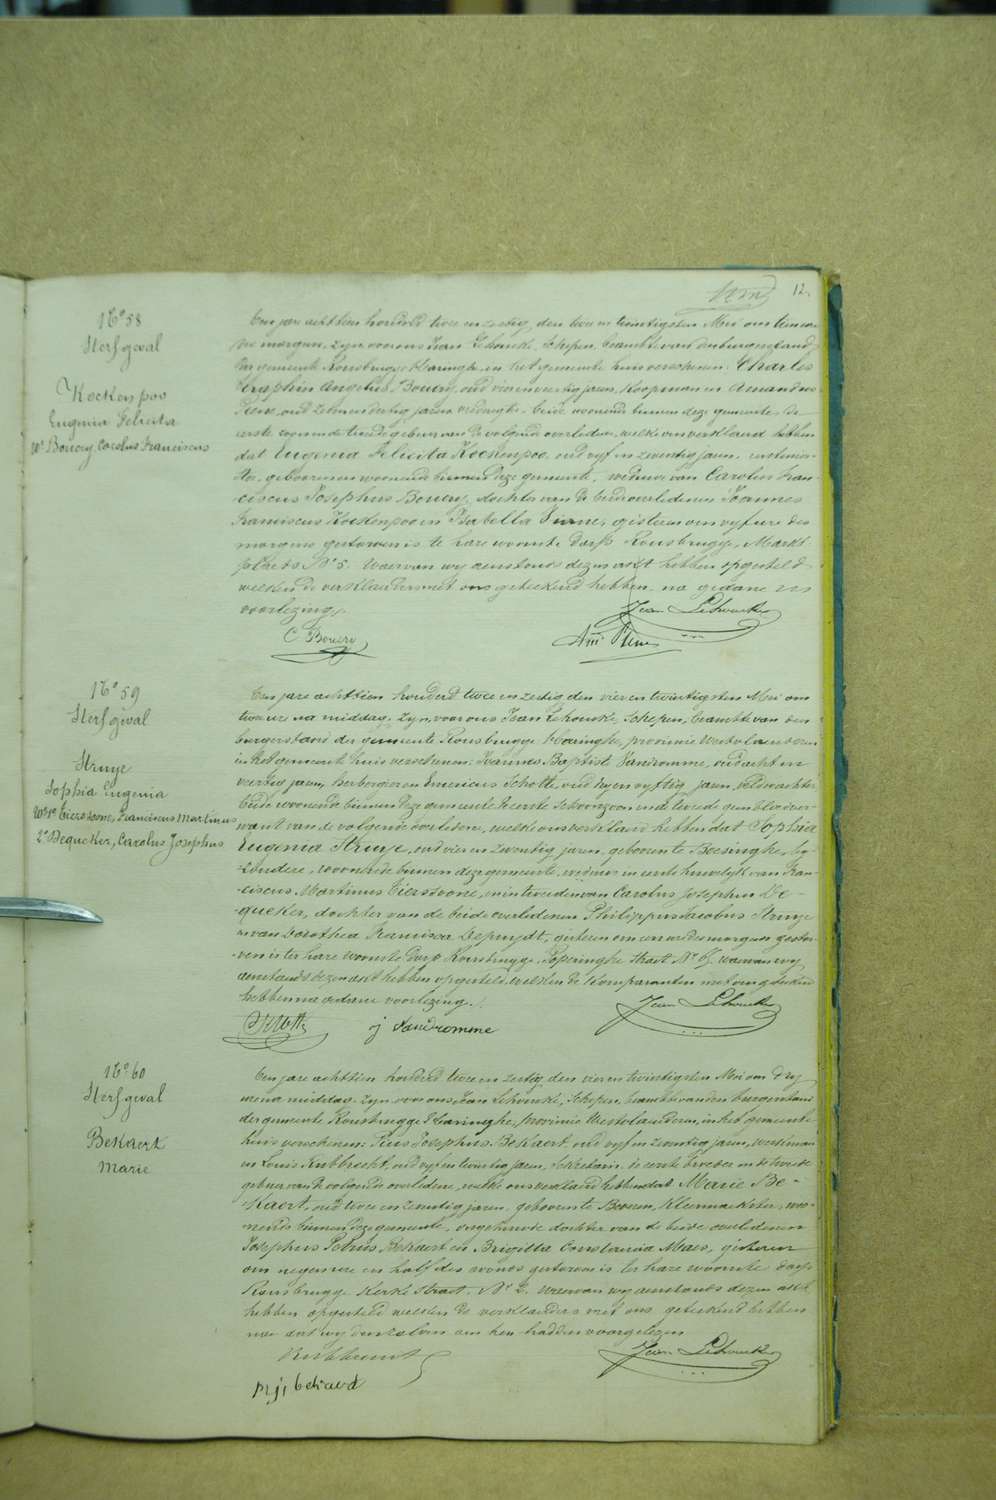 12.
N° 58
Sterfgeval
Kockenpoo
Eugenia Felicita
We Bouery Carolus Franciscus
Een jare achttien honderd twee en zestig, den twee en twintigsten Mei om tien
ure morgen, zyn voor ons Jean Lehoucke, Schepen, beambte van den burgerstand
der gemeente Rousbrugge Haringhe, in het gemeente huis verschenen: Charles
Seraphin Angelus Bouery, oud vier en veertig jaren, Koopman en Amandus
Pierne, oud zeven en dertig jaren, beide woonende binnen deze gemeente, de
eerste zoon en de tweede gebuer van de volgende overledene, welke ons verklaard hebben
dat Eugenia Felicita Kockenpoo, oud vyf en zeventig jaren,
geboren en woonende binnen deze gemeente, weduwe van Carolus Fran-
-ciscus Josephus Bouery, dochter van de beide overledenen Joannes
Franciscus Kockenpoo en Isabella Pierne, gisteren om vyf ure des
morgens gestorven is te hare woonste dorp Rousbrugge, Markt
plaets N° 5. Waervan wy aenstonds dezen akt hebben opgesteld
welken de verklaerders met ons geteekend hebben na gedane
voorlezing.
Jean Lehoucke
C Bouery
Am. Pierne
N° 59
Sterfgeval
Struye
Sophia Eugenia
We 1° Tiersoone, Franciscus Martinus
2° Dequeker, Carolus Josephus
Een jare achttien honderd twee en zestig den vier en twintigsten Mei om
twee ure na middag, zyn, voor ons Jean Lehoucke, Schepen, beambte van den
burgerstand der gemeente Rousbrugge Haringhe, provincie Westvlaenderen
in het gemeente huis verschenen: Joannes Baptiste Vandromme, oud acht en
veertig jaren, herbergier en Emericus Schotte, oud negen en vyftig jaren, veldwachter
beide woonende binnen deze gemeente de eerste schoonzoon en de tweede
van de volgende overledene, welke ons verklaard hebben dat Sophia
Eugenia Struye, oud vier en zeventig jaren, geboren te Boesinghe, by-
zondere, woonende binnen deze gemeente, weduwe in eerste huwelyk van Fran-
-ciscus Martinus Tiersoone, en in tweede van Carolus Josephus De-
-queker, dochter van de beide overledenen Philippus Jacobus Struye
en van Dorothea Francisca Depuydt, gisteren om ure des morgens gestor-
-ven is ter hare woonste dorp Rousbrugge, Poperinghe Straet N° waervan wy
aenstonds dezen akt hebben opgesteld welken de komparanten met ons geteekend
hebben na gedane voorlezing.
Jean Lehoucke
Schotte
j Vandromme
N° 60
Sterfgeval
Bekaert
Marie
Een jare achttien honderd twee en zestig den vier en twintigsten Mei om dry
ure na middag, zyn voor ons, Jean Lehoucke, Schepen, beambte van den burgerstand
der gemeente Rousbrugge Haringhe, provincie Westvlaenderen, in het gemeente
huis verschenen: Pius Josephus Bekaert, oud vyf en zeventig jaren, werkman
en Louis Rubbrecht, oud vyf en twintig jaren, Sekretaris, de eerste broeder en de tweede
gebuer van de volgende overledene, welke ons verklaard hebben dat Marie Be-
-kaert, oud twee en zeventig jaren, geboren te Beveren, Kleermaekster, woo-
-nende binnen deze gemeente, ongehuwde dochter van de beide overledenen
Josephus Petrus Bekaert en Brigitta Constancia Maes, gisteren
om negen ure en half des avonds gestorven is ter hare woonste dorp
Rousbrugge Kerkestraet, N° 2. Waervan wy aenstonds dezen akt
hebben opgesteld welken de verklaerders met ons geteekend hebben
na dat wy den zelven aen hen hadden voorgelezen
Jean Lehoucke
Rubbrecht
p j bekaerd